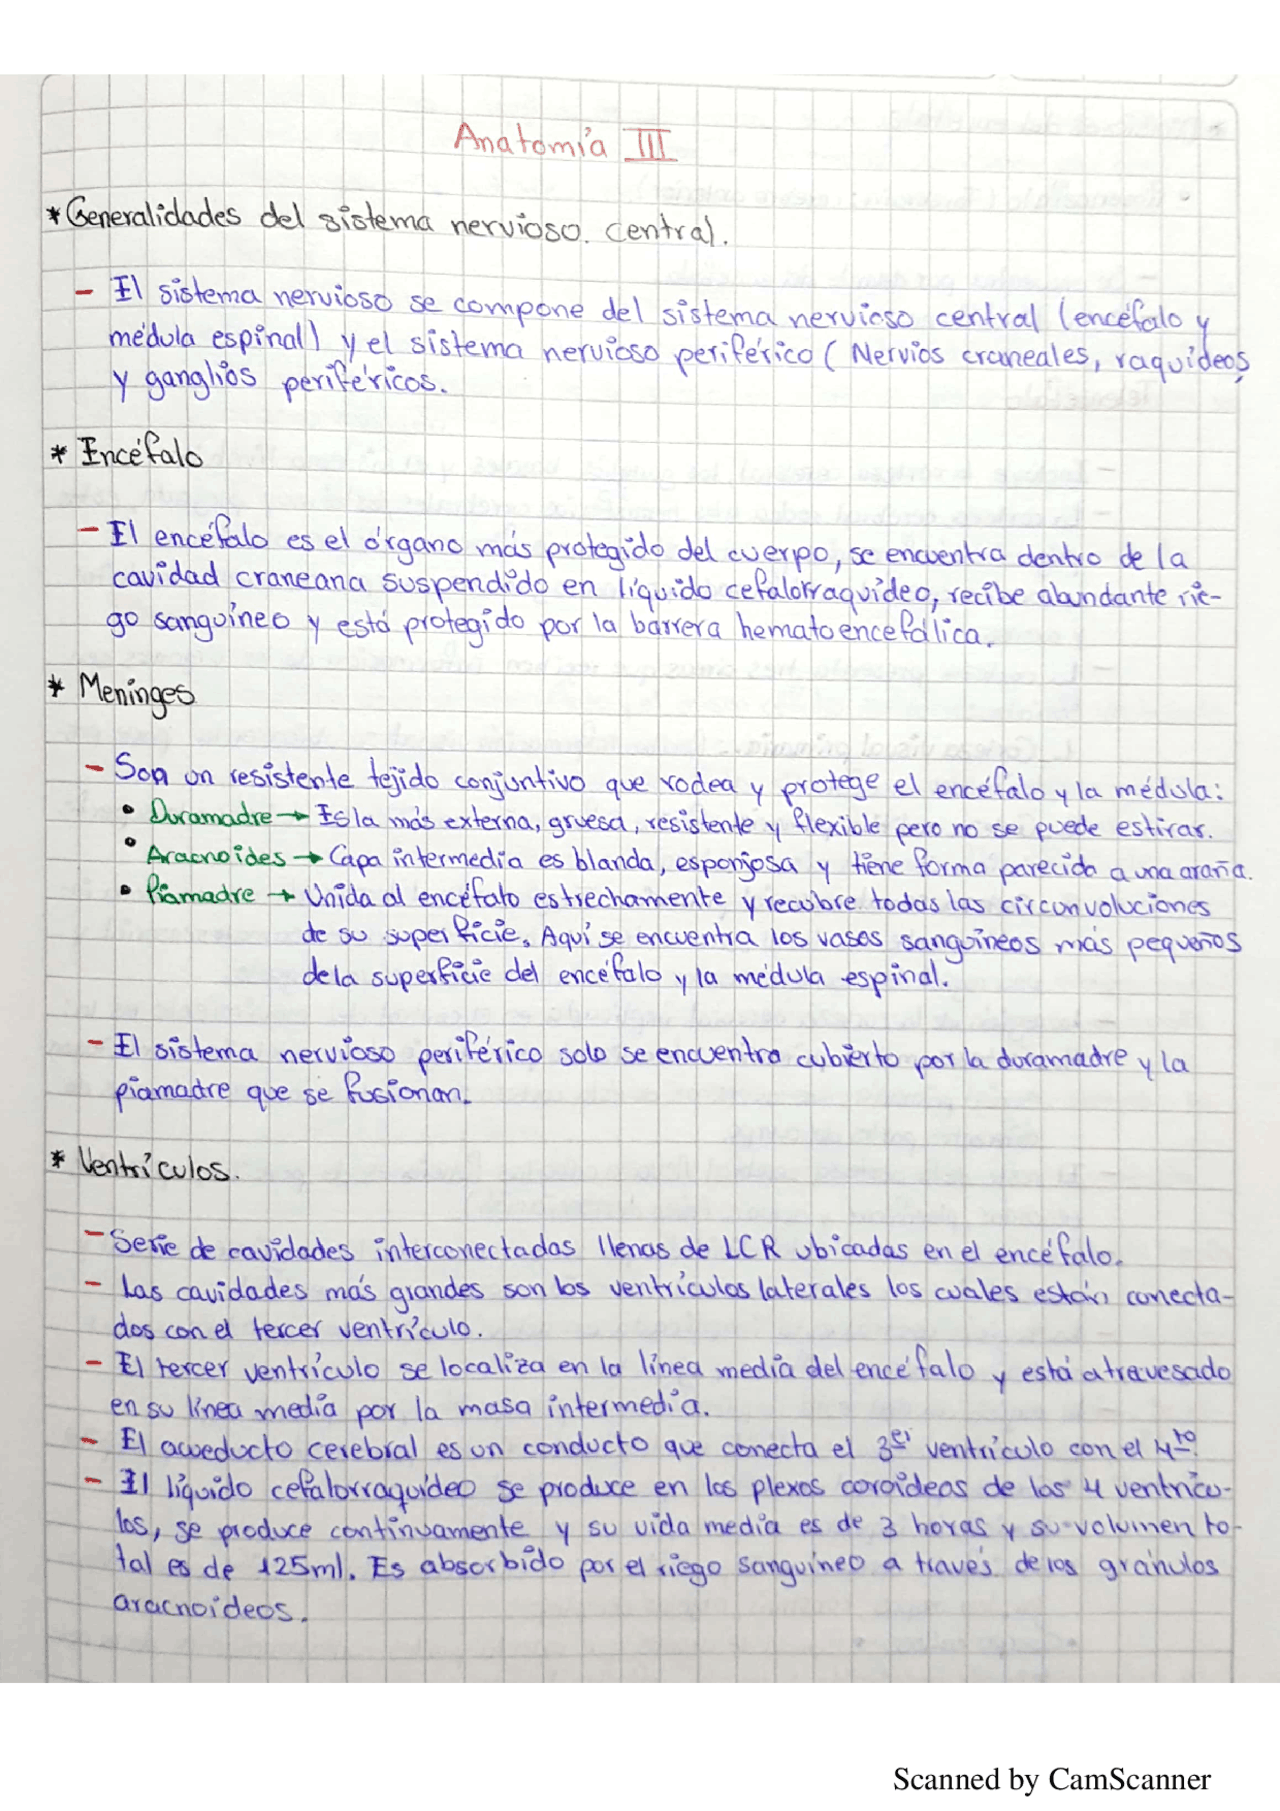 Anatomía III
* Generalidades del sistema nervioso. central.
- El sistema nervioso se compone del sistema nervioso central (encéfalo y
médula espinal) y el sistema nervioso periférico ( Nervios craneales, raquídeos
y ganglios periféricos.
* Encéfalo
- El encéfalo es el órgano más protegido del cuerpo, se encuentra dentro de la
cavidad craneana suspendido en líquido cefalorraquídeo, recibe abundante rie-
go sanguíneo y está protegido por la barrera hematoencefálica.
* Meninges
- Son un resistente tejido conjuntivo que rodea y protege el encéfalo y la médula:
• Duramadre → Es la más externa, gruesa, resistente y flexible pero no se puede estirar.
• Aracnoides → Capa intermedia es blanda, esponjosa y tiene forma parecida a una araña.
• Piamadre → Unida al encéfalo estrechamente y recubre todas las circunvoluciones
de su superficie. Aquí se encuentra los vasos sanguíneos más pequeños
de la superficie del encéfalo y la médula espinal.
- El sistema nervioso periférico solo se encuentra cubierto por la duramadre y la
piamadre que se fusionan.
* Ventrículos.
- Serie de cavidades interconectadas llenas de LCR ubicadas en el encéfalo.
- Las cavidades más grandes son los ventrículos laterales los cuales están conecta-
dos con el tercer ventrículo.
- El tercer ventrículo se localiza en la línea media del encéfalo y está atravesado
en su línea media por la masa intermedia.
- El acueducto cerebral es un conducto que conecta el 3er ventrículo con el 4to.
- El líquido cefalorraquídeo se produce en los plexos coroideos de los 4 ventrícu-
los, se produce continuamente y su vida media es de 3 horas y su volumen to-
tal es de 125ml. Es absorbido por el riego sanguíneo a través de los gránulos
aracnoideos.
Scanned by CamScanner